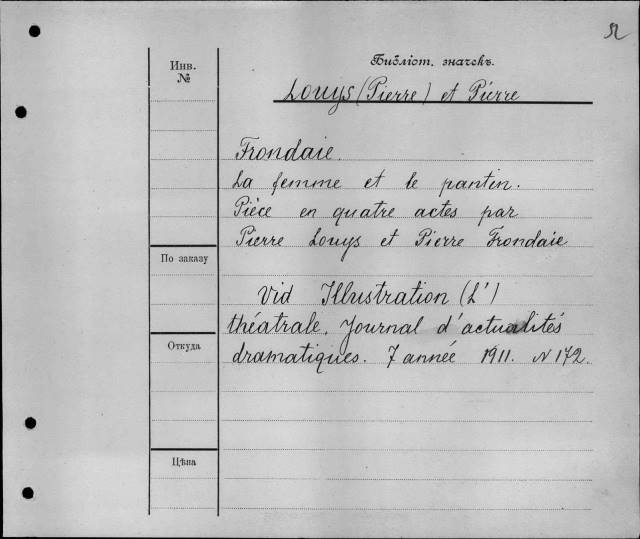 Инв.
№
Библіот. значекъ.
Louys (Pierre) et Pierre
Frondaie.
La femme et le pantin.
Pièce en quatre actes par
Pierre Louys et Pierre Frondaie
По заказу
Vid Illustration (L')
théatrale. Journal d'actualités
Откуда
dramatiques. 7 année 1911. N 172.
Цѣна